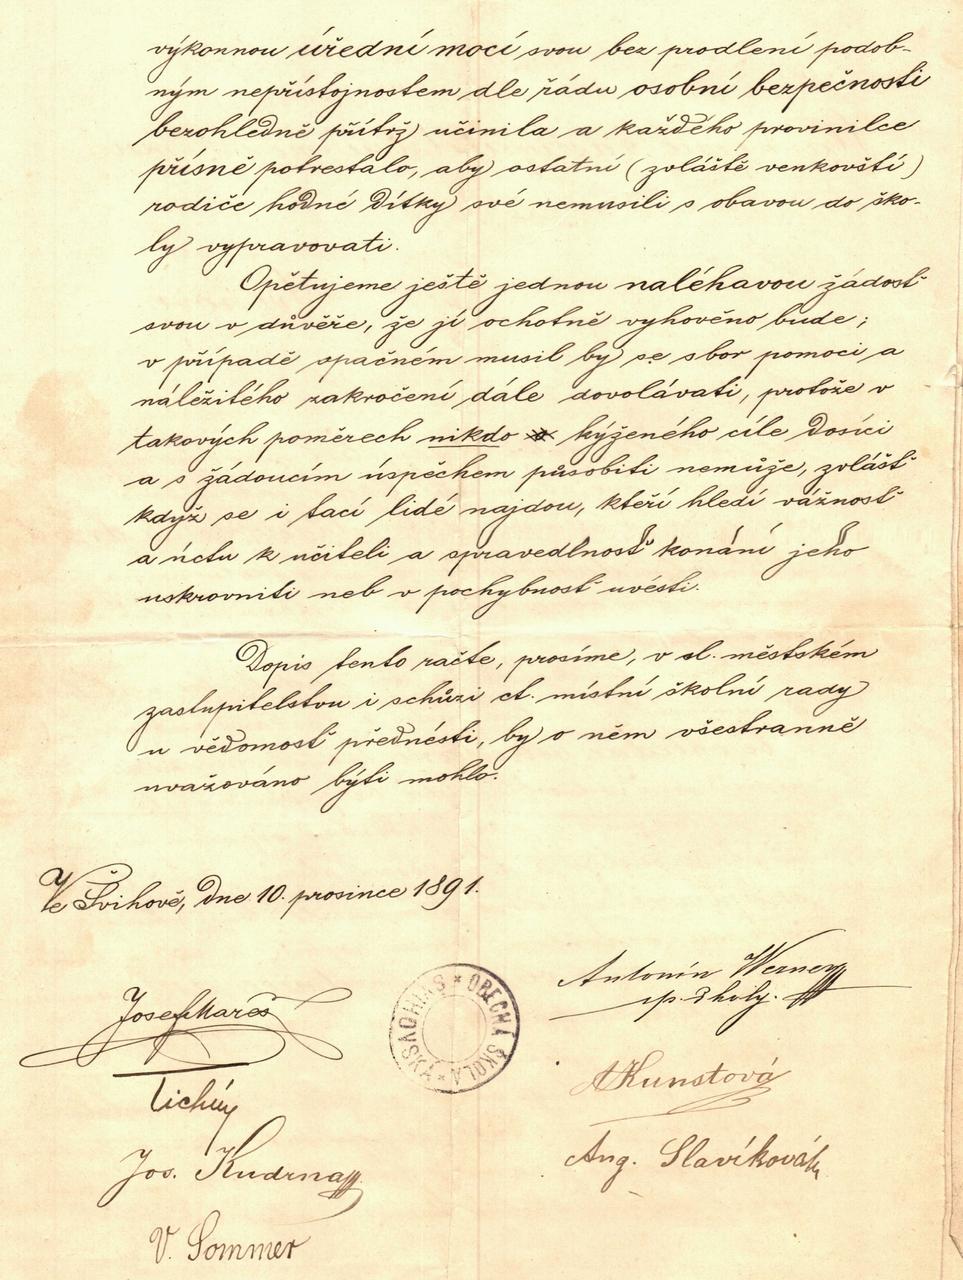 výkonnou úřední mocí svou bez prodlení podob-
ným nepřístojnostem dle řádu osobní bezpečnosti
bezohledně přítrž učinila a každého provinilce
přísně potrestalo, aby ostatní (zvláště venkovští)
rodiče hodné dítky své nemusili s obavou do ško-
ly vypravovati.
Opětujeme ještě jednou naléhavou žádost
svou v důvěře, že jí ochotně vyhověno bude;
v případě opačném musil by se sbor pomoci a
náležitého zakročení dále dovolávati, protože v
takových poměrech nikdo kýženého cíle dosíci
a s žádoucím úspěchem působiti nemůže, zvlášť
když se i tací lidé najdou, kteří hledí vážnosť
a úctu k učiteli a spravedlnosť konání jeho
uskrovniti neb v pochybnosť uvésti.
Dopis tento račte, prosíme, v sl. městském
zastupitelstvu i schůzi ct. místní školní rady
u vědomosť přednésti, by o něm všestranně
uvažováno býti mohlo.
Ve Švihově, dne 10. prosince 1891.
Antonín Werner
Josef Mareš
OBECNÁ ŠKOLA
Tichý
AKunstová
Jos. Kudrna
Aug. Slavíková
V. Sommer